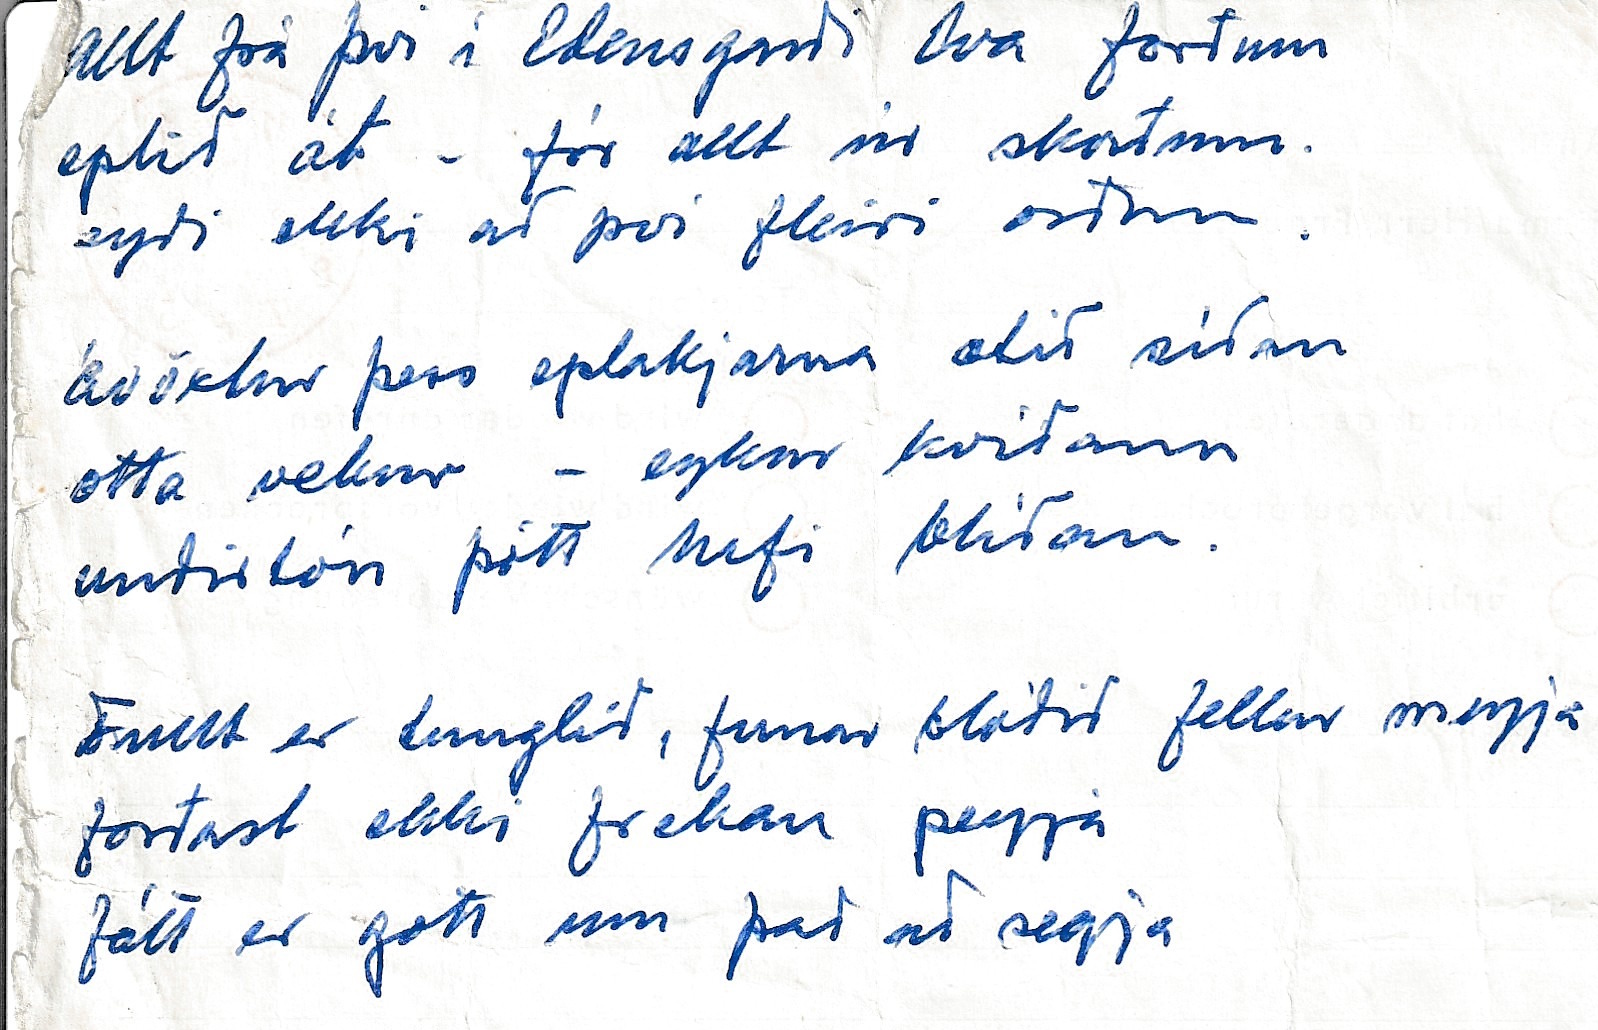 Allt frá því í Edensgarði Eva forðum
eplið át - fór allt úr skorðum.
eyði ekki að því fleiri orðum.
Ávöxtur þess eplakjarna ætíð síðan
ótta vekur - eykur kvíðann
undirtón þótt hafi blíðan.
Fullt er tunglið, funar blóðið fellur meyja
forðast ekki frekan peyja
fátt er gott um það að segja